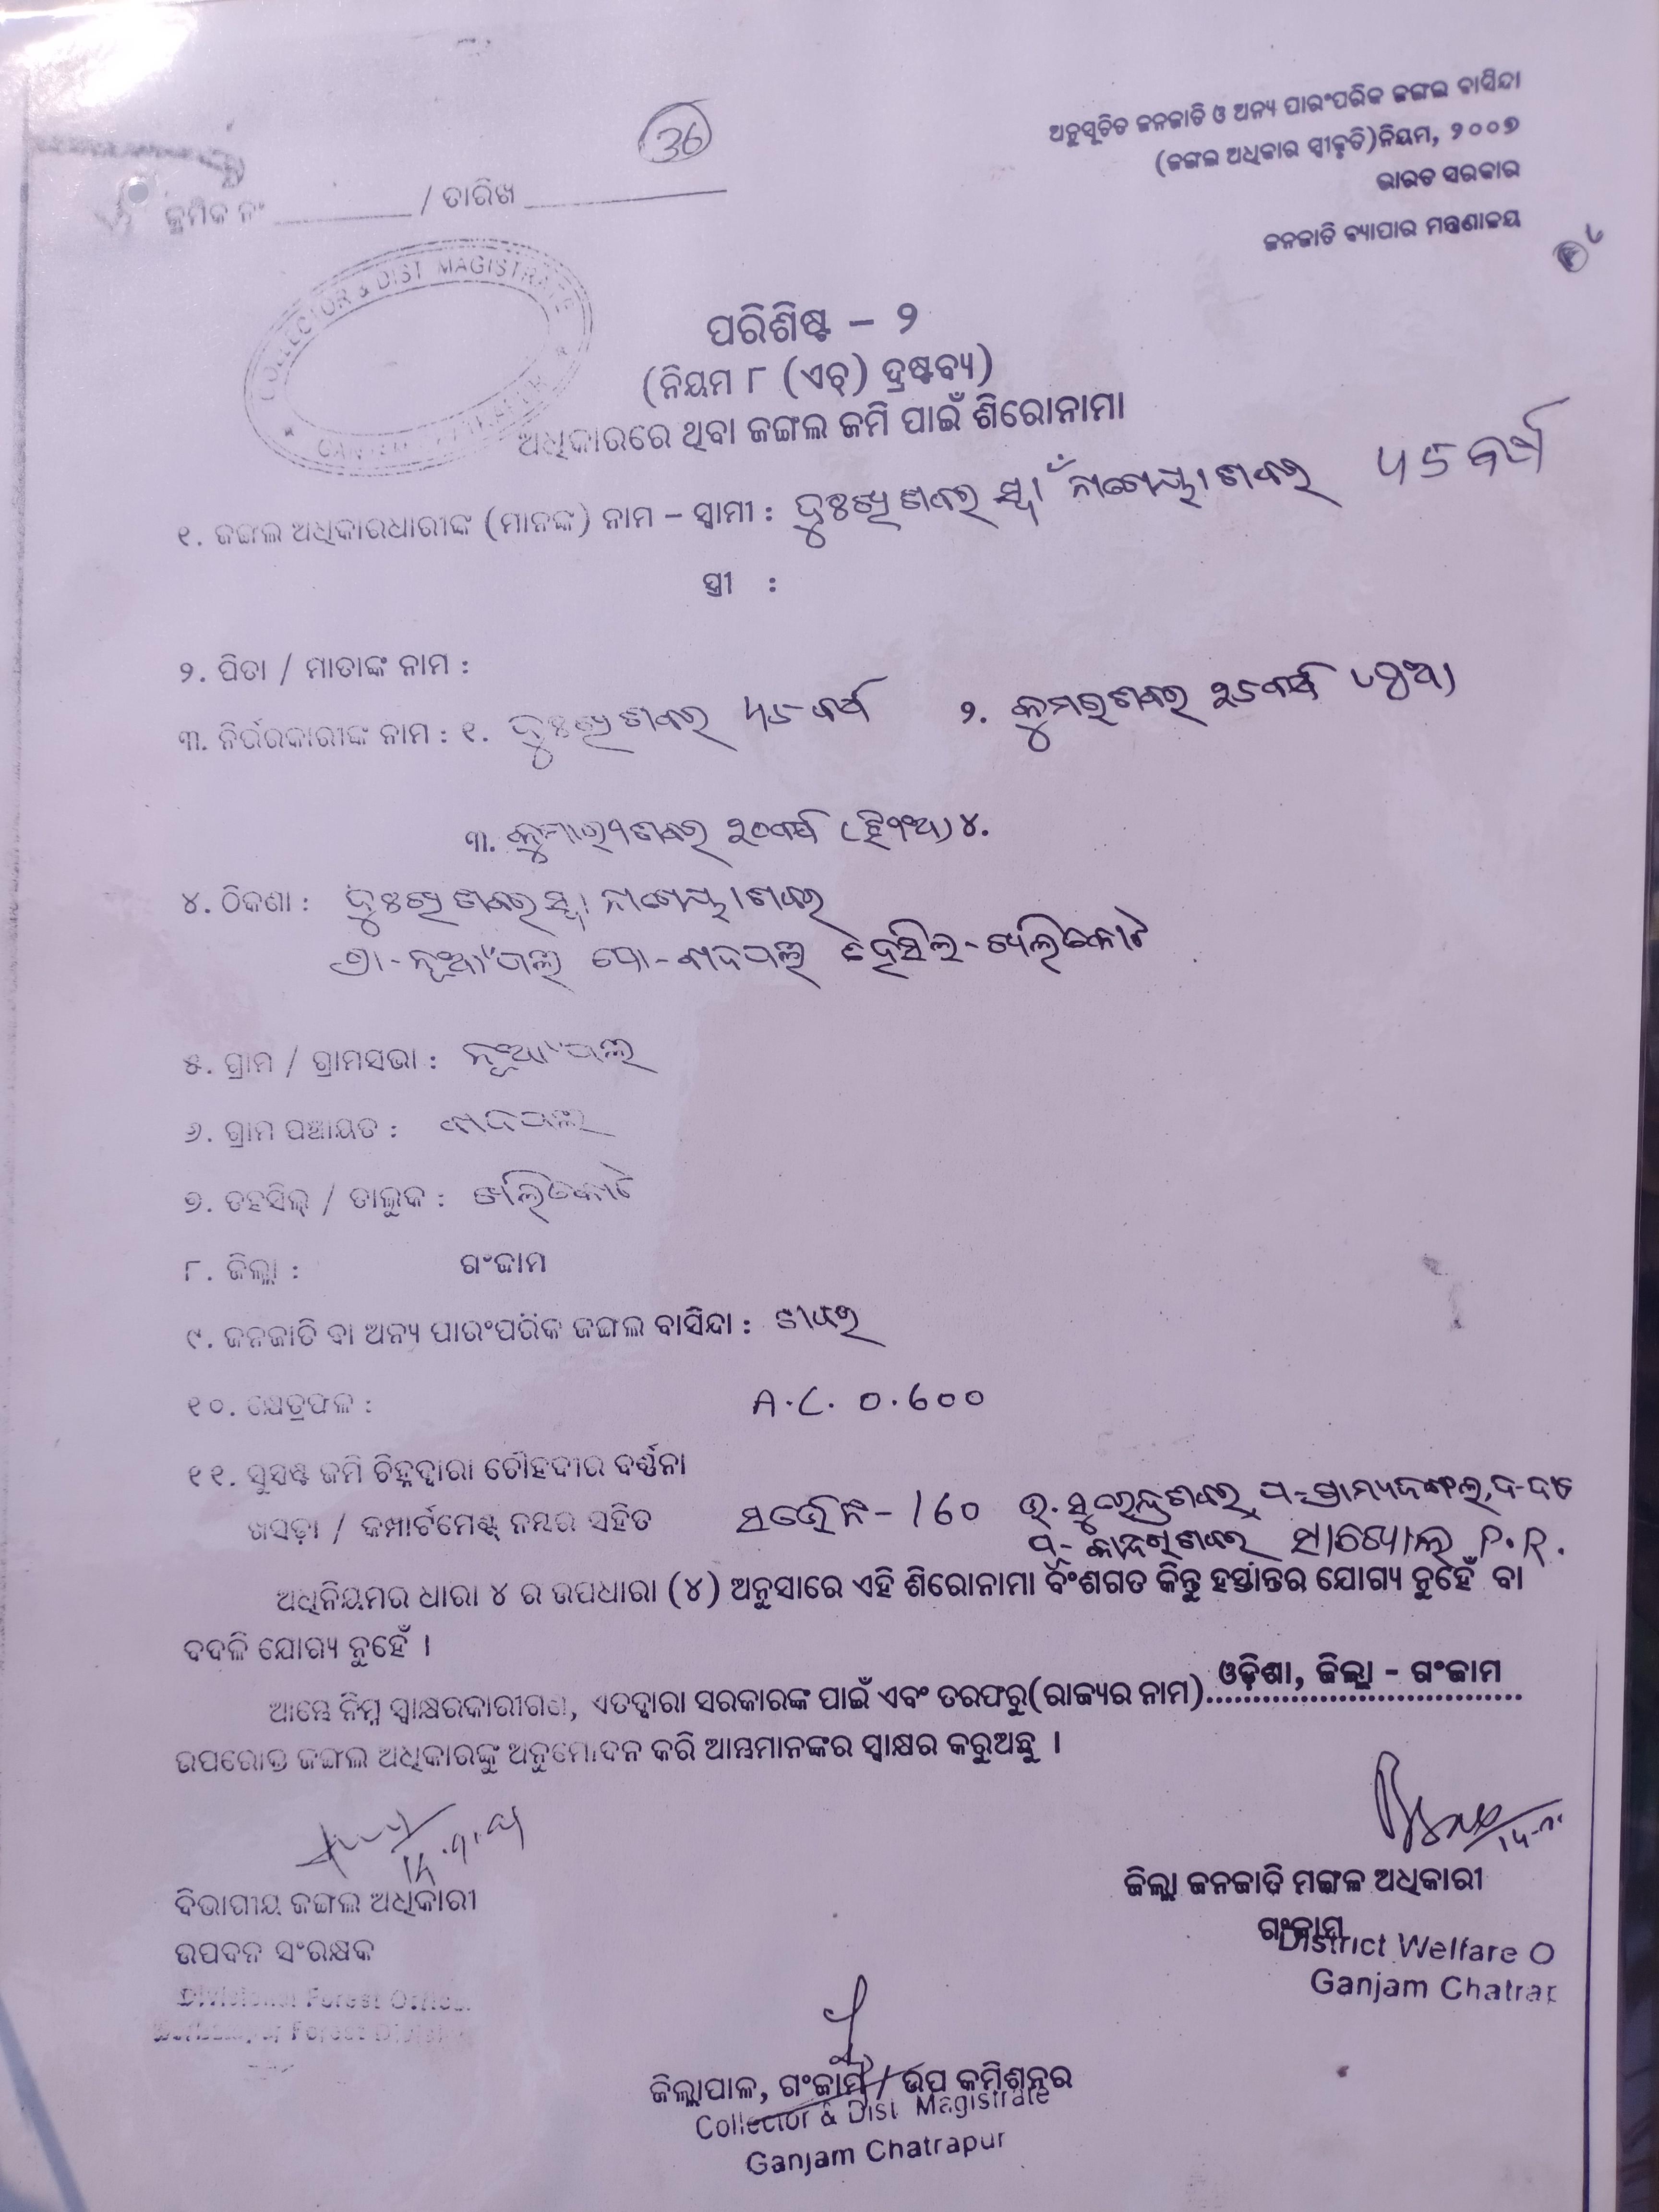 ଅନୁସୂଚିତ ଜନଜାତି ଓ ଅନ୍ୟ ପାରଂପରିକ ଜଙ୍ଗଲ ବାସିନ୍ଦା
(ଜଙ୍ଗଲ ଅଧିକାର ସ୍ୱୀକୃତି)ନିୟମ, ୨୦୦୭
ଭାରତ ସରକାର
ଜନଜାତି ବ୍ୟାପାର ମନ୍ତ୍ରଣାଳୟ
36
କ୍ରମିକ ନଂ ________ / ତାରିଖ ____________
COLLECTOR & DIST MAGISTRATE
ପରିଶିଷ୍ଟ – ୨
(ନିୟମ ୮ (ଏଚ୍) ଦ୍ରଷ୍ଟବ୍ୟ)
ଅଧିକାରରେ ଥିବା ଜଙ୍ଗଲ ଜମି ପାଇଁ ଶିରୋନାମା
୧. ଜଙ୍ଗଲ ଅଧିକାରଧାରୀଙ୍କ (ମାନଙ୍କ) ନାମ – ସ୍ୱାମୀ : ଦୁଃଖି ଶବର ବର୍ଷ
ସ୍ତ୍ରୀ :
୨. ପିତା / ମାତାଙ୍କ ନାମ :
୩. ନିର୍ଭରକାରୀଙ୍କ ନାମ : ୧. ଦୁଃଖି ଶବର ବର୍ଷ ୨. କୁମର ଶବର ବର୍ଷ (ପୁଅ)
୩. ଶବର ୨୦ବର୍ଷ (ଝିଅ) ୪.
୪. ଠିକଣା : ଦୁଃଖି ଶବର ଶବର
ତହସିଲ-ଖଲିକୋଟ
୫. ଗ୍ରାମ / ଗ୍ରାମସଭା :
୬. ଗ୍ରାମ ପଞ୍ଚାୟତ :
୭. ତହସିଲ୍ / ତାଲୁକ : ଖଲିକୋଟ
୮. ଜିଲ୍ଲା : ଗଂଜାମ
୯. ଜନଜାତି ବା ଅନ୍ୟ ପାରଂପରିକ ଜଙ୍ଗଲ ବାସିନ୍ଦା : ଶବର
୧୦. କ୍ଷେତ୍ରଫଳ : A.C. 0.600
୧୧. ସୁସ୍ପଷ୍ଟ ଜମି ଚିହ୍ନଦ୍ୱାରା ଚୌହଦୀର ବର୍ଣ୍ଣନା
ଖସଡ଼ା / କମ୍ପାର୍ଟମେଣ୍ଟ୍ ନମ୍ବର ସହିତ – 160 ଉ. ସୁରେନ୍ଦ୍ର ଶବର, ପ-ଗ୍ରାମ୍ୟଜଙ୍ଗଲ,
ଶବର P.R.
ଅଧିନିୟମର ଧାରା ୪ ର ଉପଧାରା (୪) ଅନୁସାରେ ଏହି ଶିରୋନାମା ବଂଶଗତ କିନ୍ତୁ ହସ୍ତାନ୍ତର ଯୋଗ୍ୟ ନୁହେଁ ବା
ବଦଳି ଯୋଗ୍ୟ ନୁହେଁ ।
ଆମ୍ଭେ ନିମ୍ନ ସ୍ୱାକ୍ଷରକାରୀଗଣ, ଏତଦ୍ୱାରା ସରକାରଙ୍କ ପାଇଁ ଏବଂ ତରଫରୁ(ରାଜ୍ୟର ନାମ) ଓଡ଼ିଶା, ଜିଲ୍ଲା - ଗଂଜାମ
ଉପରୋକ୍ତ ଜଙ୍ଗଲ ଅଧିକାରଙ୍କୁ ଅନୁମୋଦନ କରି ଆମ୍ଭମାନଙ୍କର ସ୍ୱାକ୍ଷର କରୁଅଛୁ ।
ଜିଲ୍ଲା ଜନଜାତି ମଙ୍ଗଳ ଅଧିକାରୀ
ଗଂଜାମ
District Welfare O
Ganjam Chatrap
ବିଭାଗୀୟ ଜଙ୍ଗଲ ଅଧିକାରୀ
ଉପବନ ସଂରକ୍ଷକ
Divisional Forest Officer
Forest Division
ଜିଲ୍ଲାପାଳ, ଗଂଜାମ / ଉପ କମିଶନର
Collector & Dist. Magistrate
Ganjam Chatrapur